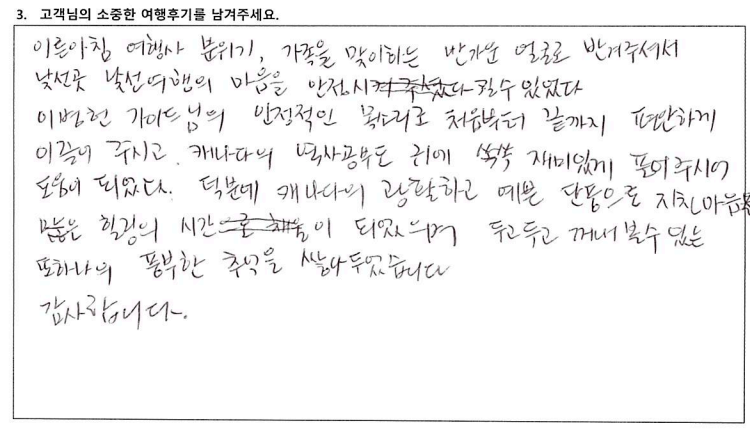 3. 고객님의 소중한 여행후기를 남겨주세요.
이른아침 여행사 분위기, 가족을 맞이하는 반가운 얼굴로 반겨주셔서
낯선곳 낯선여행의 마음을 안정시킬수 있었다
이병헌 가이드님의 안정적인 목소리로 처음부터 끝까지 편안하게
이끌어 주시고 캐나다의 역사공부도 귀에 쏙쏙 재미있게 풀어주시어
도움이 되었다. 덕분에 캐나다의 광활하고 예쁜 단풍으로 지친마음
힐링의 시간이 되었으며 두고두고 꺼내볼수 있는
또하나의 풍부한 추억을 쌓아두었습니다
감사합니다.